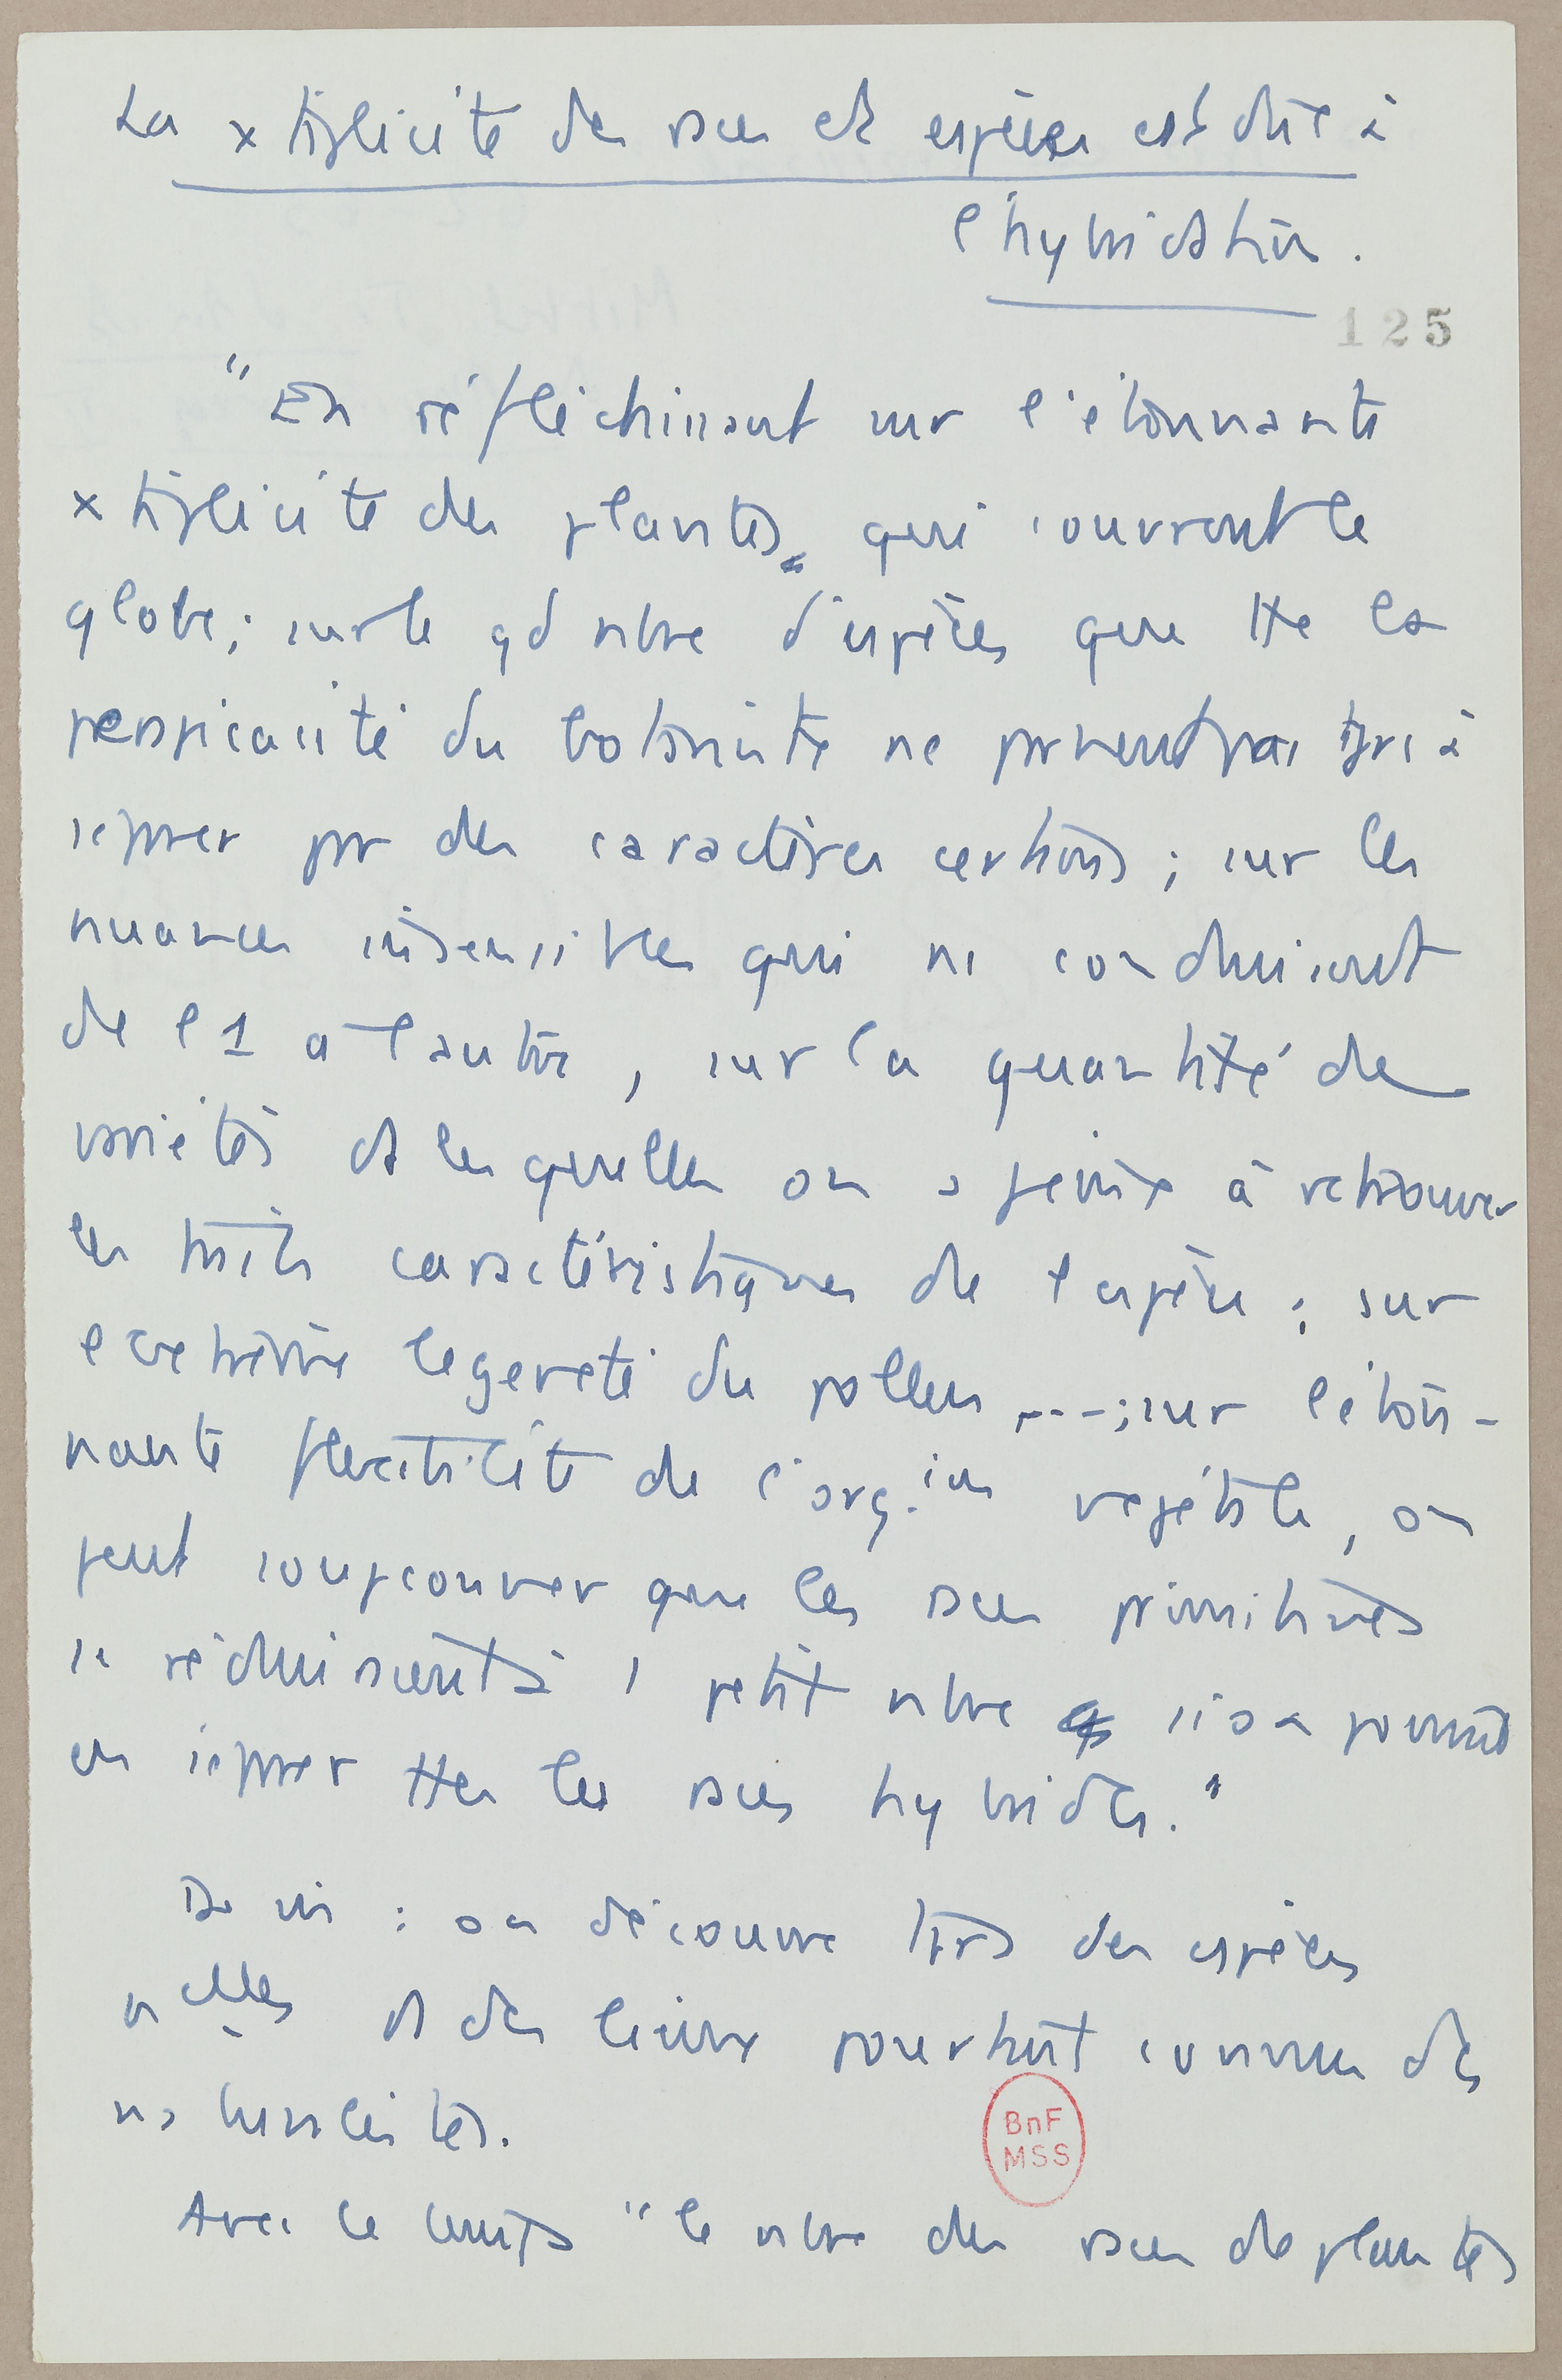 La xtiplicité des races et espèces est due à
l'hybridation.
125
"En réfléchissant sur l'étonnante
xtiplicité des plantes qui couvrent le
globe ; sur le gd nbre d'espèces que tte la
perspicacité du botaniste ne parvient pas tjrs à
séparer par des caractères certains ; sur les
nuances insensibles qui ns conduisent
de l'1 à l'autre, sur la quantité de
variétés ds lesquelles on a peine à retrouver
les traits caractéristiques de l'espèce ; sur
l'extrême légèreté du pollen ---; sur l'éton-
nante flexibilité de l'org.ion végétale, on
peut soupçonner que les races primitives
se réduiraient à 1 petit nbre si on pouvait
en séparer ttes les races hybrides."
: on découvre tjrs des espèces
nelles ds des lieux pourtant connus des
naturalistes.
BnF
MSS
Avec le temps "le nbre des races de plantes